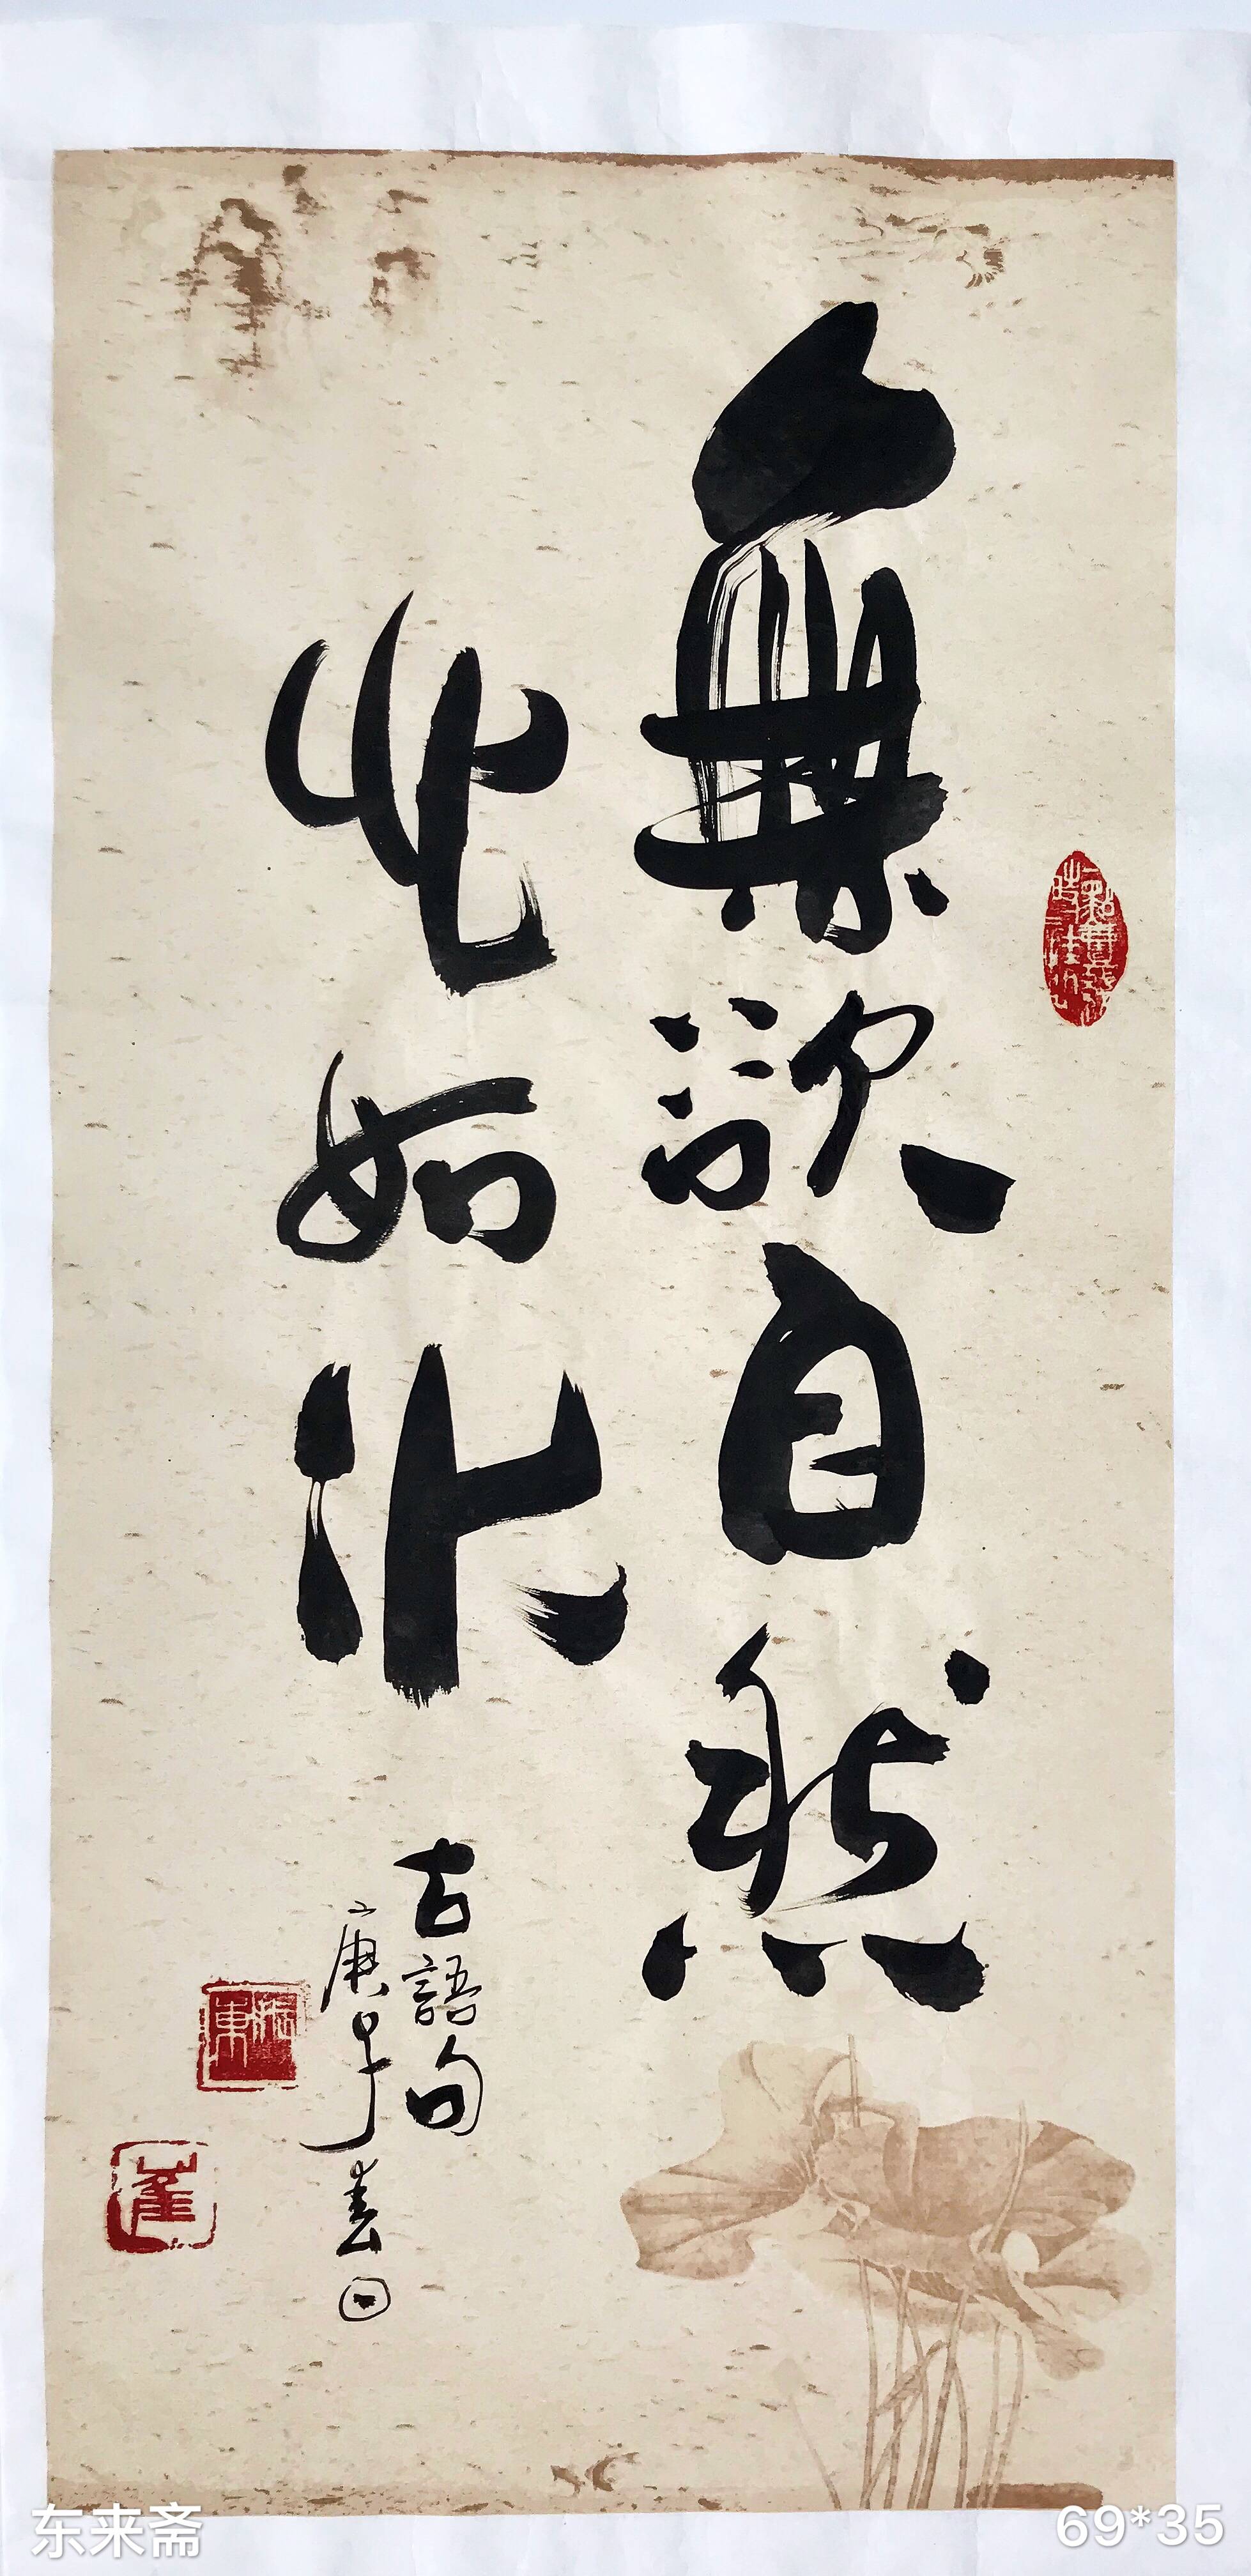 無欲自然
心如水
古語句
庚子春日
东来斋
69*35